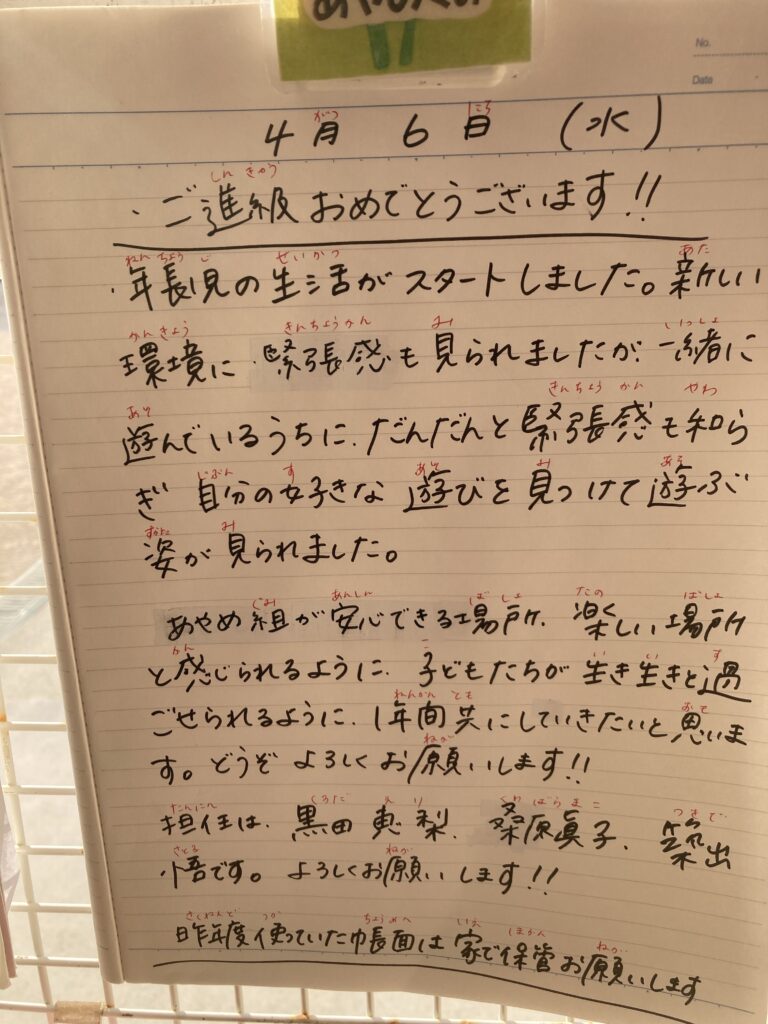 No.
Date
4月 6日 (水)
・ご進級おめでとうございます!!
・年長児の生活がスタートしました。新しい
環境に緊張感も見られましたが、一緒に
遊んでいるうちに、だんだんと緊張感も和ら
ぎ 自分の好きな 遊びを見つけて遊ぶ
姿が見られました。
あやめ組が安心できる場所、楽しい場所
と感じられるように、子どもたちが生き生きと過
ごせられるように、1年間共にしていきたいと思いま
す。どうぞ よろしくお願いします!!
担任は、黒田恵梨、桑原眞子、築出
悟です。よろしくお願いします!!
昨年度使っていた帳面は家で保管お願いします